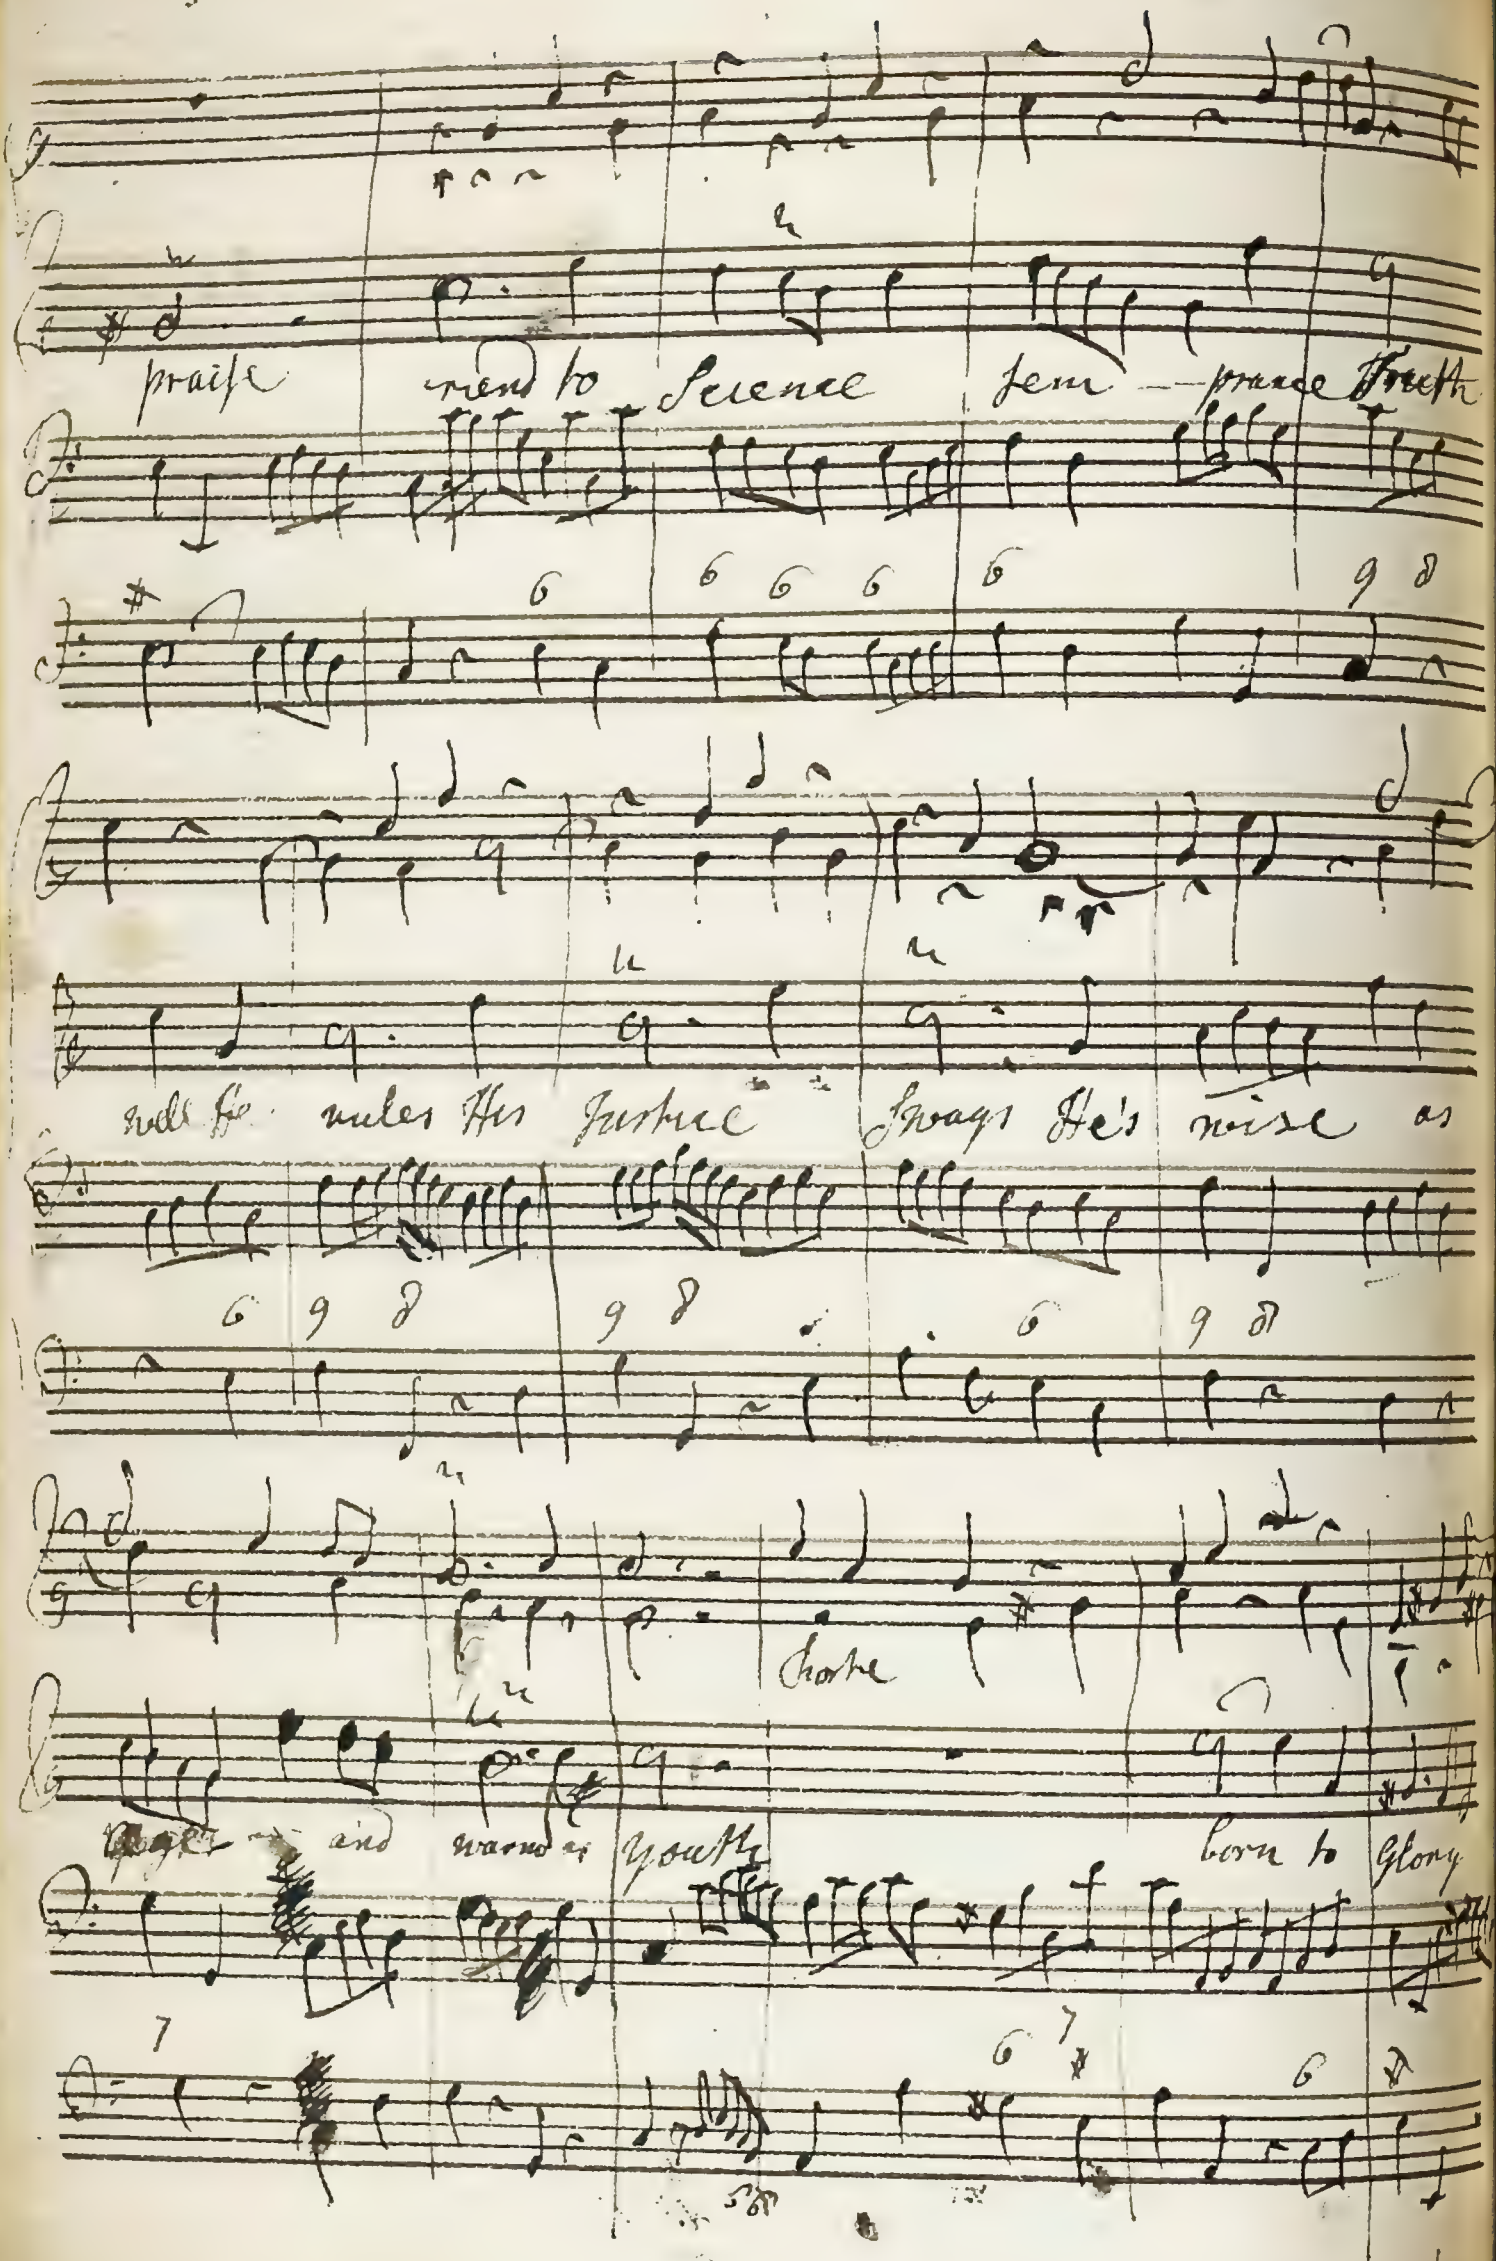 praise riend to Science tem - - prance Truth
6 6 6 6 6 9 8
well he rules His Justice Sways He's wise as
6 9 8 9 8 6 9 8
Chorke
and warm as youth born to Glory
7 6 7 6